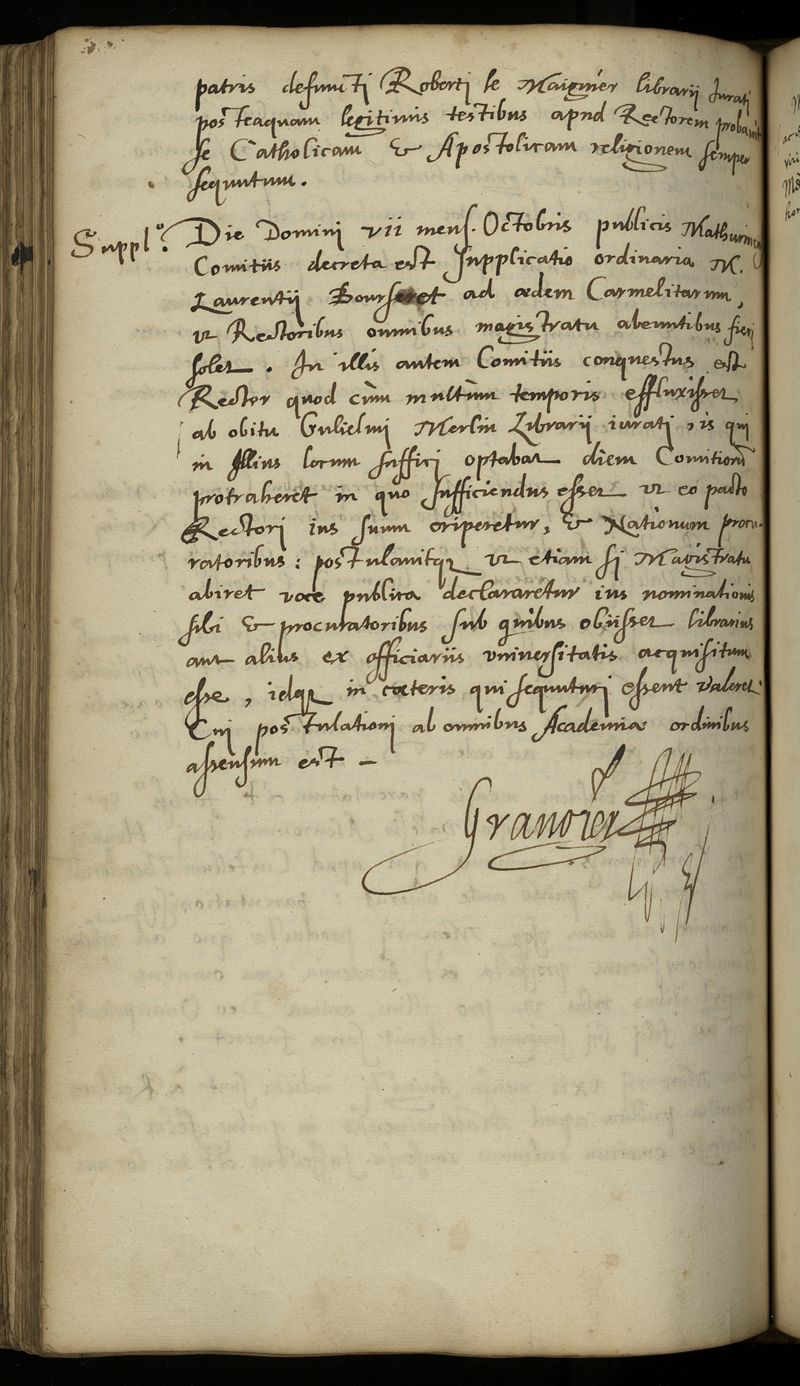 patris defuncti Roberti le Maignier librarii Jurati
posteaquam legitimis testibus apud Rectorem probavit
se Catholicam & Apostolicam religionem semper
sequutum.
Supplo. Die Domini vii mens. Octobris publicis Mathurinen
Comitiis decreta est supplicatio ordinaria M.
Laurentii Bourseret ad aedem Carmelitarum,
ut Rectoribus omnibus magistratu abeuntibus fieri
solet. In illis autem Comitiis conquestus est
Rector quod cùm multùm temporis effluxisset
ab obitu Gulielmi Merlin Librarii iurati, is qui
in illius locum suffici optabat diem Comitiorū
protraheret in quo sufficiendus esset ut eo pacto
Rectori ius suum eriperetur, & Nationum procu-
ratoribus: postulavitqz ut etiam si Magistratu
abiret voce publica declararetur ius nominationis
sibi & procuratoribus sub quibus obiisset librarius
aut alius ex officiariis universitatis acquisitum
esse, idqz in caeteris qui sequuturi essent valeret.
Cui postulationi ab omnibus Academiae ordinibus
assensum est –